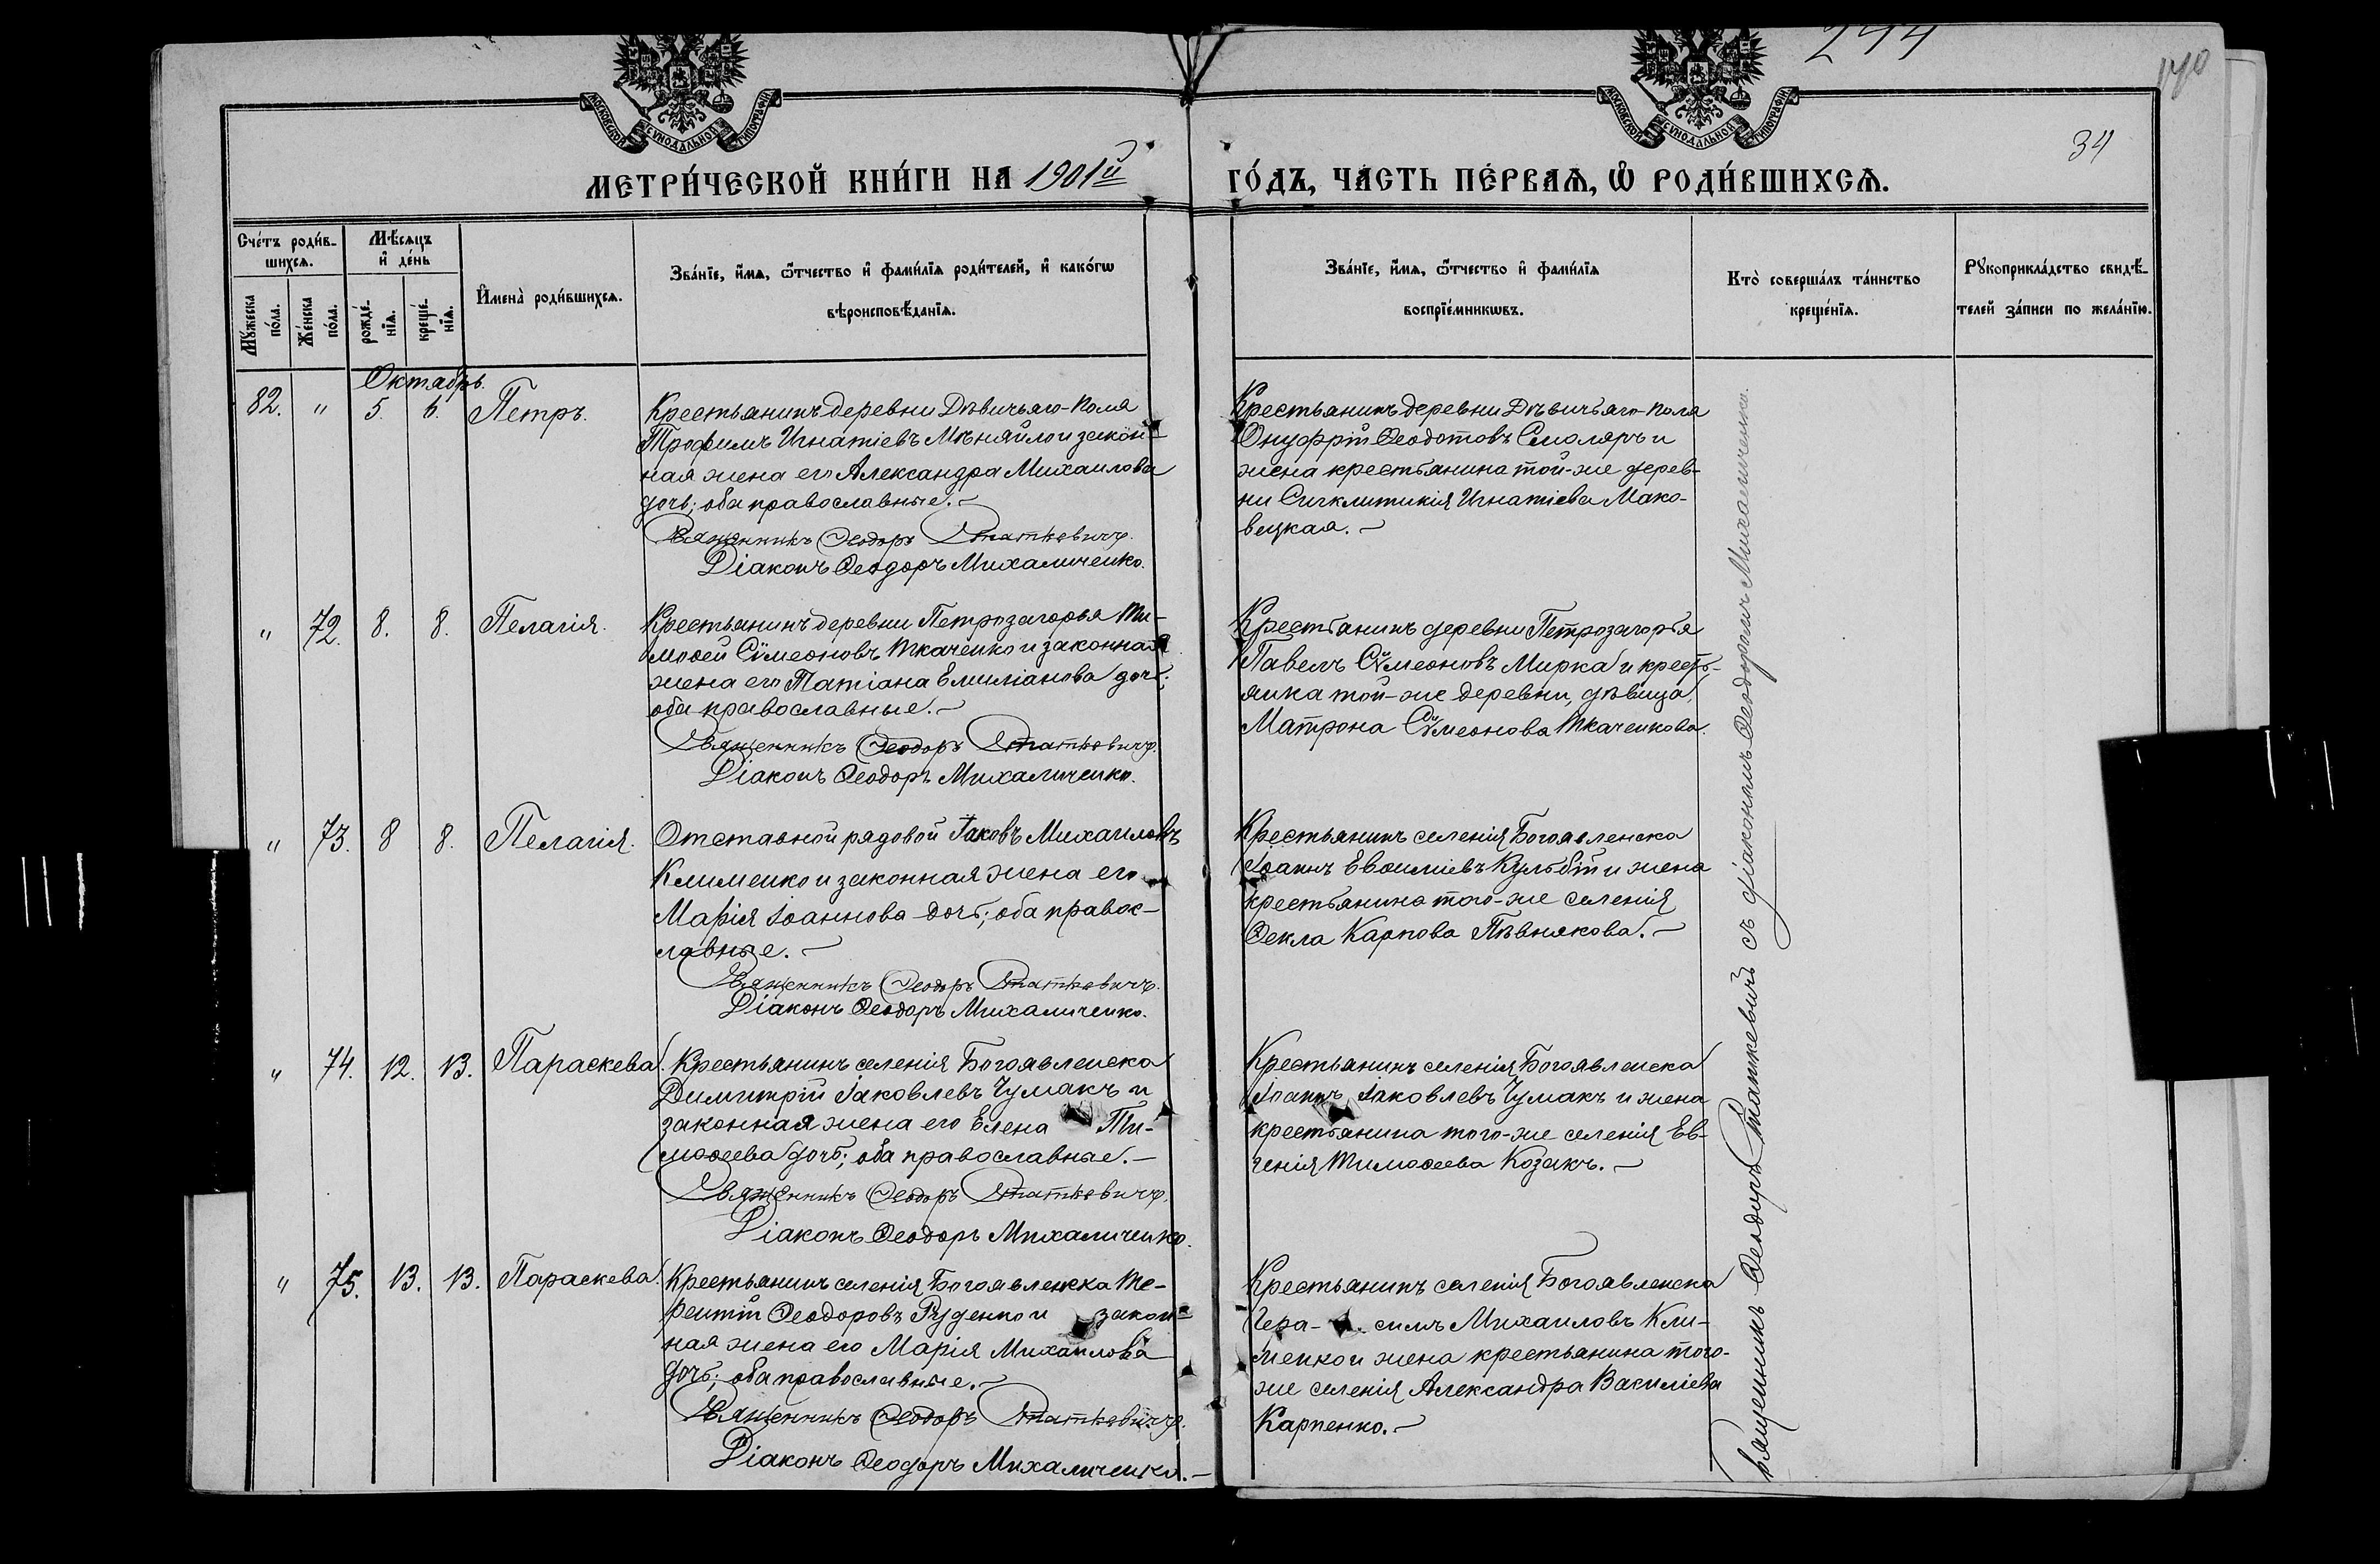 244
140
34
МОСКОВСКОЙ СѴНОДАЛЬНОЙ ТИПОГРАФІИ
МОСКОВСКОЙ СѴНОДАЛЬНОЙ ТИПОГРАФІИ
МЕТРИ́ЧЕСКОЙ КНИ́ГИ НА 1901й ГО́ДЪ, ЧА́СТЬ ПЕ́РВАѦ, Ѽ РОДИ́ВШИХСѦ.
Сче́тъ роди́в-
шихсѧ.
Мѣ́сѧцъ
и҆ де́нь
Мꙋ́жеска
по́ла.
Же́нска
по́ла.
рожде́-
нїѧ.
креще́-
нїѧ.
И҆мена̀ роди́вшихсѧ.
Зва́нїе, и҆́мѧ, ѻ҆́тчество и҆ фами́лїѧ роди́телей, и҆ како́гѡ
вѣроисповѣ́данїѧ.
Зва́нїе, и҆́мѧ, ѻ҆́тчество и҆ фами́лїѧ
воспрїе́мникѡвъ.
Кто̀ соверша́лъ та́инство
креще́нїѧ.
Рꙋкоприкла́дство свидѣ́-
телей за́писи по жела́нїю.
Октябрь.
82. " 5. 6. Петръ.
Крестьянинъ деревни Дѣвичьяго-Поля
Трофимъ Игнатіевъ Мѣняйло и закон-
ная жена его Александра Михаилова
дочь; оба православные.
Священникъ Ѳеодоръ Статкевичъ.
Діаконъ Ѳеодоръ Михаличенко.
Крестьянинъ деревни Дѣвичьяго-Поля
Онуфрій Ѳеодотовъ Смоляръ и
жена крестьянина той-же дерев-
ни Сигклитикія Игнатіева Мако-
вецкая.
" 72. 8. 8. Пелагія.
Крестьянинъ деревни Петрозагорья Ти-
моѳей Сѵмеоновъ Ткаченко и законная
жена его Татіана Емиліанова дочь;
оба православные.
Священникъ Ѳеодоръ Статкевичъ.
Діаконъ Ѳеодоръ Михаличенко.
Крестьянинъ деревни Петрозагорья
Павелъ Сѵмеоновъ Мирка и кресть-
янка той-же деревни, дѣвица,
Матрона Сѵмеонова Ткаченкова.
" 73. 8 8. Пелагія.
Отставной рядовой Іаковъ Михаиловъ
Клименко и законная жена его
Марія Іоаннова дочь; оба правос-
лавные.
Священникъ Ѳеодоръ Статкевичъ.
Діаконъ Ѳеодоръ Михаличенко.
Крестьянинъ селенія Богоявленска
Іоаннъ Евѳиміевъ Кульбій и жена
крестьянина того-же селенія
Ѳекла Карпова Пѣвнякова.
" 74. 12. 13. Параскева.
Крестьянинъ селенія Богоявленска
Димитрій Іаковлевъ Чумакъ и
законная жена его Елена Ти-
моѳеева дочь; оба православные.
Священникъ Ѳеодоръ Статкевичъ.
Діаконъ Ѳеодоръ Михаличенко.
Крестьянинъ селенія Богоявленска
Іоаннъ Іаковлевъ Чумакъ и жена
крестьянина того-же селенія Ев-
генія Тимоѳеева Козакъ.
" 75. 13. 13. Параскева.
Крестьянинъ селенія Богоявленска Те-
рентій Ѳеодоровъ Руденко и закон-
ная жена его Марія Михаилова
дочь; оба православные.
Священникъ Ѳеодоръ Статкевичъ.
Діаконъ Ѳеодоръ Михаличенко.
Крестьянинъ селенія Богоявленска
Гера- симъ Михаиловъ Кли-
менко и жена крестьянина того-
же селенія Александра Василіева
Карпенко.
Священникъ Ѳеодоръ Статкевичъ съ діакономъ Ѳеодоромъ Михаличенко.